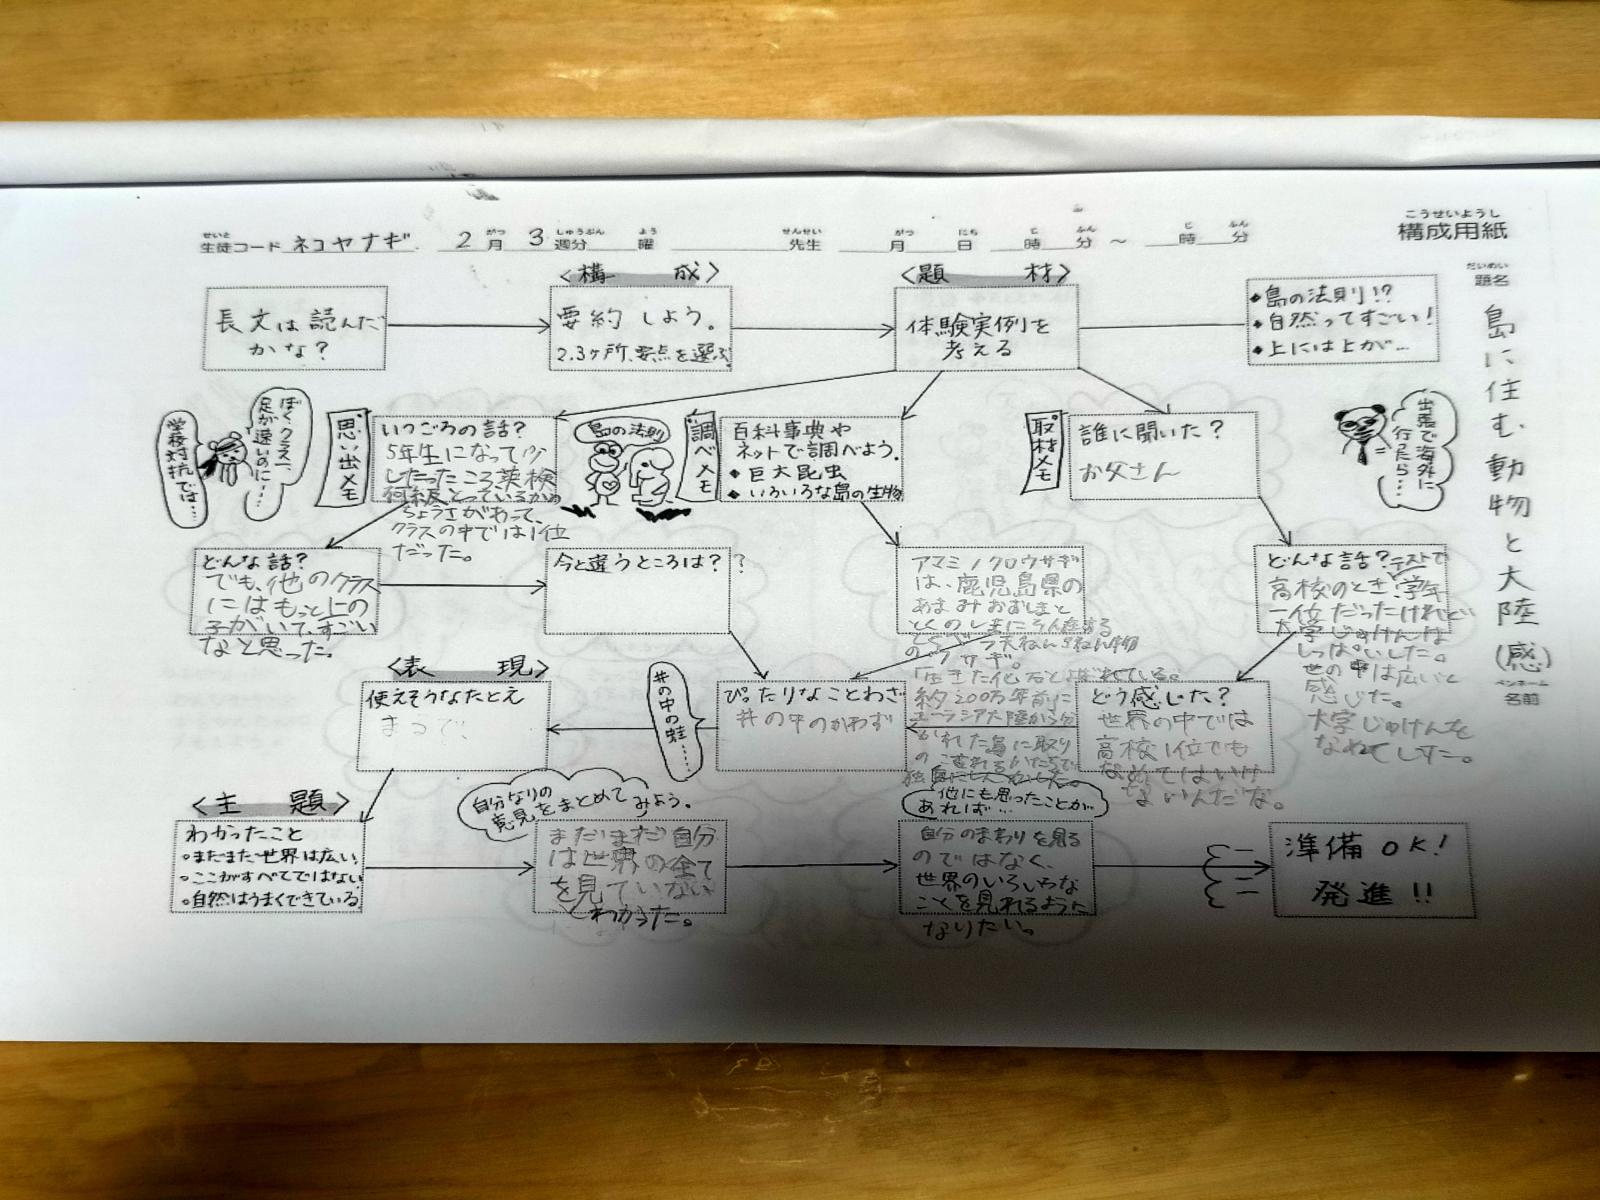 こうせいようし
構成用紙
せいと
生徒コード ネコヤナギ 2月 3週分 曜 先生 月 日 時 分 ～ 時 分
がつ しゅうぶん よう せんせい がつ にち じ ふん じ ふん
だいめい
題名
島に住む動物と大陸(感)
ペンネーム
名前
長文は読んだ
かな？
〈構 成〉
要約しよう。
2.3ヶ所、要点を選ぶ
〈題 材〉
体験実例を
考える
◆島の法則!?
◆自然ってすごい！
◆上には上が…
学校対抗では…
ぼく、クラス一、
足が速いのに…
思い出メモ
いつごろの話？
5年生になって少
したったころ、英検
何級とっているかの
ちょうさがあって、
クラスの中では1位
だった。
島の法則
調べメモ
百科事典や
ネットで調べよう。
◆巨大昆虫
◆いろいろな島の生物
取材メモ
誰に聞いた？
お父さん
出張で海外に
行ったら…
どんな話？
でも、他のクラス
にはもっと上の
子がいて、すごい
なと思った。
今と違うところは？？
アマミノクロウサギ
は、鹿児島県の
あまみおおしまと
とくのしまに
のウサギ。
「生きた化石とよばれている。
約200万年前に
ユーラシア大陸から分
かれた島に取り
のこされるかたちで
どんな話？テストで
高校のとき、学年
一位だったけれど
大学じゅけんは
しっぱいした。
世の中は広いと
感じた。
大学じゅけんを
なめてした。
〈表 現〉
使えそうなたとえ
まるで、
井の中の蛙…
ぴったりなことわざ
井の中のかわず
どう感じた？
世界の中では
高校1位でも
なめてはいけ
ないんだな。
〈主 題〉
わかったこと
◦まだまだ世界は広い
◦ここがすべてではない
◦自然はうまくできている
自分なりの
意見をまとめてみよう。
まだまだ自分
は世界の全て
を見ていない
とわかった。
他にも思ったことが
あれば…
自分のまわりを見る
のではなく、
世界のいろいろな
ことを見れるように
なりたい。
準備OK!
発進!!